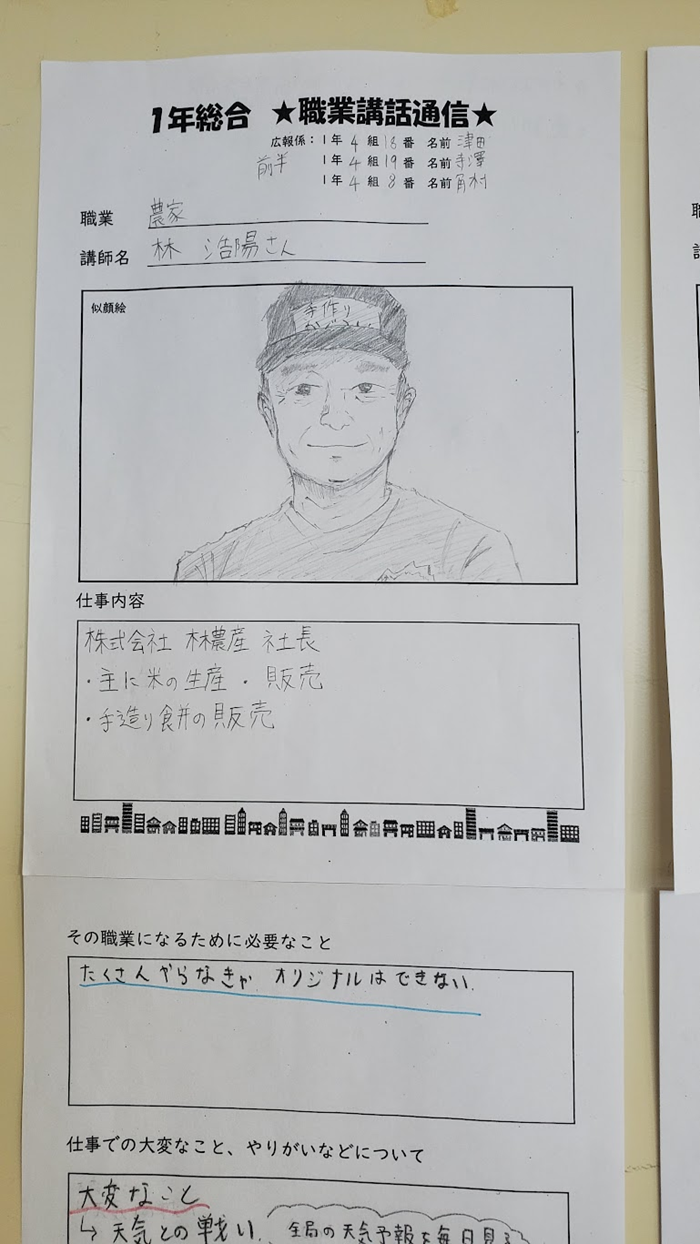 1年総合 ★職業講話通信★
広報係：1年 4 組 18 番 名前 津田
前半
1年 4 組 19 番 名前 寺澤
1年 4 組 8 番 名前 角村
職業 農家
講師名 林 浩陽さん
似顔絵
手作り
かぶらい
仕事内容
株式会社 林農産 社長
・主に米の生産・販売
・手造り餅の販売
その職業になるために必要なこと
たくさんやらなきゃ オリジナルはできない.
仕事での大変なこと、やりがいなどについて
大変なこと
↳ 天気との戦い.
全局の天気予報を毎日見る